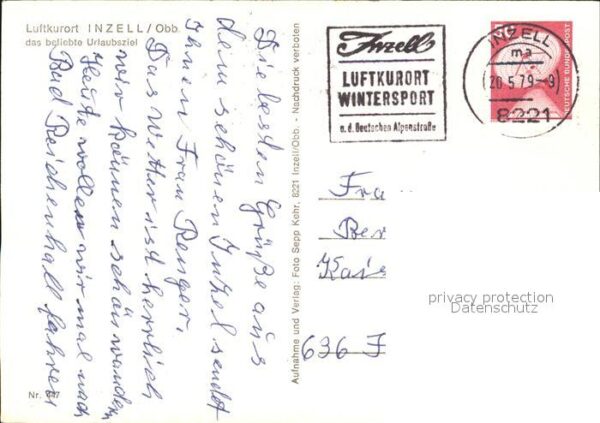 Luftkurort INZELL/Obb.
das beliebte Urlaubsziel
Die besten Grüße aus
dem schönen Inzel sendet
Ihnen Frau Renger.
Das Wetter ist herrlich
wir können schön wandern
Heute wollen wir mal nach
Bad Reichenhall fahren
Nr. 447
Aufnahme und Verlag: Foto Sepp Kehr, 8221 Inzell/Obb. - Nachdruck verboten
Inzell
LUFTKURORT
WINTERSPORT
a. d. Deutschen Alpenstraße
INZELL
ma
20.5.79-9
8221
DEUTSCHE BUNDESPOST
Fra
Ber
Kais
636 F
privacy protection
Datenschutz